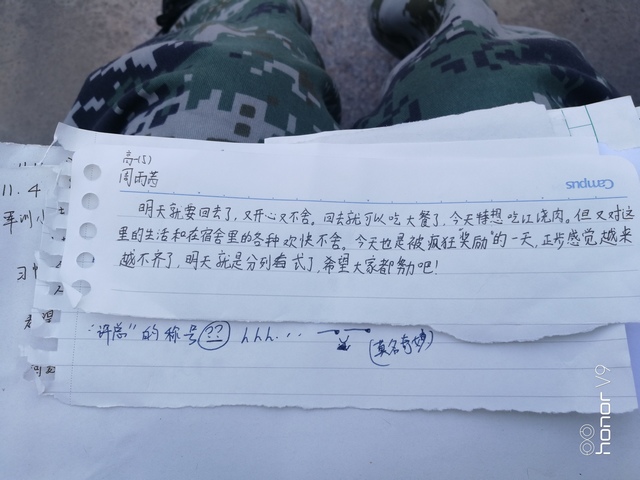 高一(5)
周雨茜
Campus
明天就要回去了,又开心又不舍。回去就可以吃大餐了,今天特想吃红烧肉。但又对这
里的生活和在宿舍里的各种欢快不舍。今天也是被疯狂"奖励"的一天,正步感觉越来
越不齐了,明天就是分列式了,希望大家都努力吧!
"许总"的称号?? hhh... (莫名奇妙)
11.4
军训
习
希望
honor V9